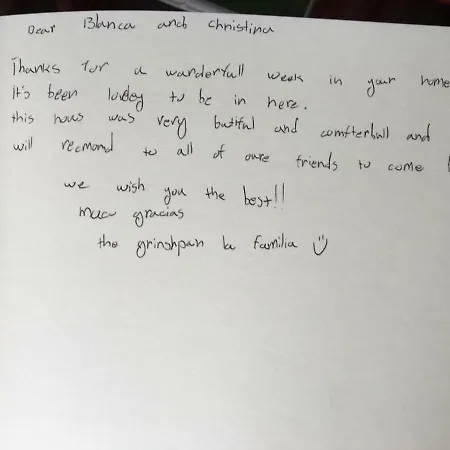 Dear Blanca and christina
Thanks for a wanderfull week in your home
It's been lovley to be in here.
this hous was very butiful and comfterbull and
will recmond to all of oure friends to come
we wish you the best!!
muco gracias
the grinshpan la familia